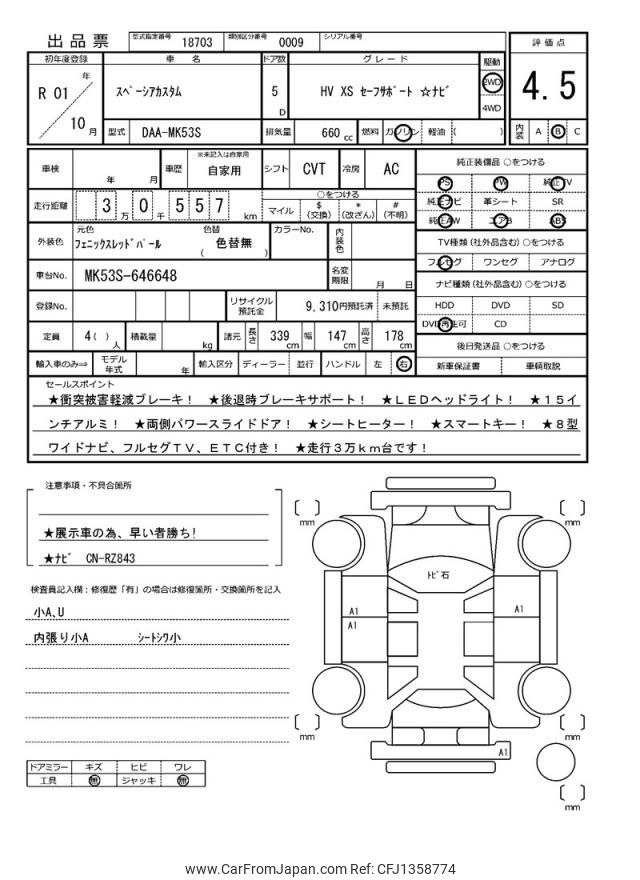 出品票
型式指定番号 18703 類別区分番号 0009 シリアル番号
評価点
4.5
内装 A B C
初年度登録 車名 ドア数 グレード 駆動
R 01 年 10 月
スペーシアカスタム
5 D
HV XS セーフサポート ☆ナビ
2WD
4WD
型式 DAA-MK53S 排気量 660 cc 燃料 ガソリン 軽油 ( )
車検 年 月 車歴 ※未記入は自家用 自家用 シフト CVT 冷房 AC
走行距離 3 万 0 千 5 5 7 km
○をつける
マイル $ (交換) * (改ざん) # (不明)
外装色 元色 フェニックスレッドパール 色替 ( 色替無 ) カラーNo. 内装色
車台No. MK53S-646648 名変期限 月 日
登録No. リサイクル預託金 9,310円預託済 未預託
定員 4 ( ) 人 積載量 kg 諸元 長さ 339 cm 幅 147 cm 高さ 178 cm
輸入車のみ⇒ モデル年式 年 輸入区分 ディーラー 並行 ハンドル 左 右
純正装備品 ○をつける
PS PW 純正TV
純正ナビ 革シート SR
純正AW エアB ABS
TV種類(社外品含む) ○をつける
フルセグ ワンセグ アナログ
ナビ種類(社外品含む) ○をつける
HDD DVD SD
DVD再生可 CD
後日発送品 ○をつける
新車保証書 車輌取説
セールスポイント
★衝突被害軽減ブレーキ! ★後退時ブレーキサポート! ★LEDヘッドライト! ★15イ
ンチアルミ! ★両側パワースライドドア! ★シートヒーター! ★スマートキー! ★8型
ワイドナビ、フルセグTV、ETC付き! ★走行3万km台です!
注意事項・不具合箇所
★展示車の為、早い者勝ち!
★ナビ CN-RZ843
検査員記入欄:修復歴「有」の場合は修復箇所・交換箇所を記入
小A、U
内張り小A シートシワ小
ドアミラー キズ ヒビ ワレ
工具 無 ジャッキ 無
mm
mm
トビ石
A1
A1
A1
mm
mm
A1
mm
www.CarFromJapan.com Ref: CFJ1358774